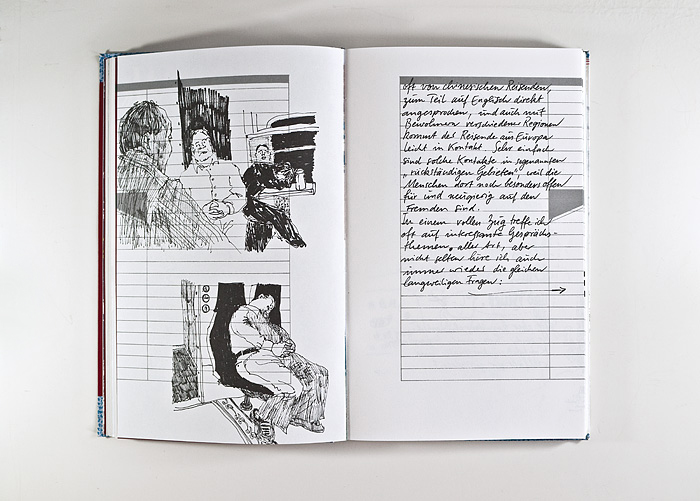 oft von chinesischen Reisenden,
zum Teil auf Englisch direkt
angesprochen, und auch mit
Bewohnern verschiedener Regionen
kommt der Reisende aus Europa
leicht in Kontakt. Sehr einfach
sind solche Kontakte in sogenannten
„rückständigen Gebieten", weil die
Menschen dort noch besonders offen
für und neugierig auf den
Fremden sind.
In einem vollen Zug treffe ich
oft auf interessante Gesprächs-
themen aller Art, aber
nicht selten höre ich auch
immer wieder die gleichen
langweiligen Fragen: